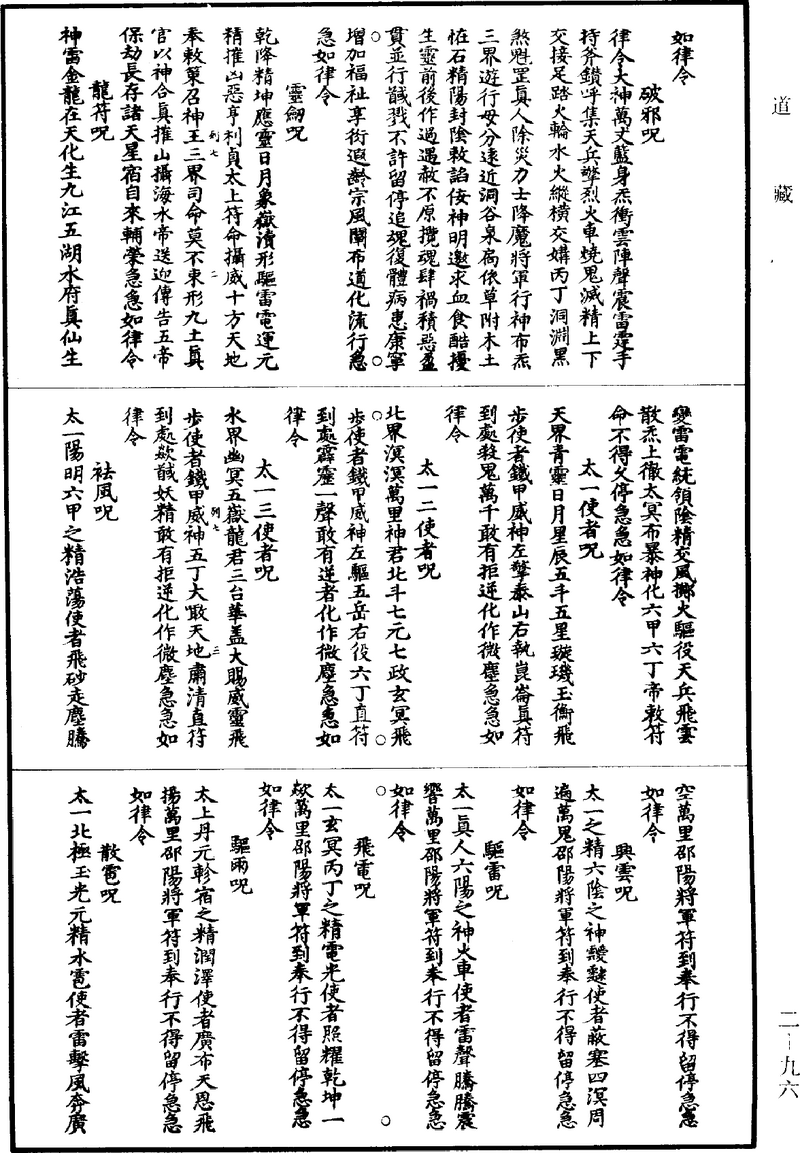 道藏
如律令
破邪呪
律令大神萬丈藍身炁衝雲陣聲震雷霆手
持斧鑕呼集天兵擎烈火車燒鬼滅精上下
交接足踏火輪水火縱橫交媾丙丁洞淵黑
煞魁罡眞人除災力士降魔將軍行神布炁
三界遊行毋分遠近洞谷泉高依草附木土
恠石精陽封陰敕諂侫神明邀求血食酷擾
生靈前後作過遇赦不原攬魂肆禍積惡盈
貫並行馘戮不許留停追魂復體病患康寧
增加福祉享衍遐齡宗風闡布道化流行急
急如律令
靈劒呪
乾降精坤應靈日月象嶽瀆形驅雷電運元
精摧凶惡亨利貞太上符命攝威十方天地
奉敕稟召神王三界司命莫不束形九土眞
官以神合眞摧山攝海水帝送迎傳告五帝
保劫長存諸天星宿自來輔榮急急如律令
龍符呪
神雷金龍在天化生九江五湖水府眞仙生
列七
二
變雷電統領陰精交風擲火驅役天兵飛雲
散炁上徹太冥布暴神化六甲六丁帝敕符
命不得久停急急如律令
太一使者呪
天界青靈日月星辰五斗五星璇璣玉衡飛
步使者鐵甲威神左擎泰山右執崑崙眞符
到處殺鬼萬千敢有拒逆化作微塵急急如
律令
太一二使者呪
北界溟溟萬里神君北斗七元七政玄冥飛
步使者鐵甲威神左驅五岳右役六丁直符
到處霹靂一聲敢有逆者化作微塵急急如
律令
太一三使者呪
水界幽冥五嶽龍君三台華蓋大賜威靈飛
步使者鐵甲威神五丁大𠵇天地肅清直符
到處欻馘妖精敢有拒逆化作微塵急急如
律令
祛風呪
太一陽明六甲之精浩蕩使者飛砂走塵騰
列七
三
空萬里邵陽將軍符到奉行不得留停急急
如律令
興雲呪
太一之精六陰之神靉靆使者蔽塞四溟周
遍萬鬼邵陽將軍符到奉行不得留停急急
如律令
驅雷呪
太一眞人六陽之神火車使者雷聲騰騰震
響萬里邵陽將軍符到奉行不得留停急急
如律令
飛電呪
太一玄冥丙丁之精電光使者照耀乾坤一
欻萬里邵陽將軍符到奉行不得留停急急
如律令
驅雨呪
太上丹元軫宿之精潤澤使者廣布天恩飛
揚萬里邵陽將軍符到奉行不得留停急急
如律令
散雹呪
太一北極玉光元精水雹使者雷擊風奔廣
二－九六